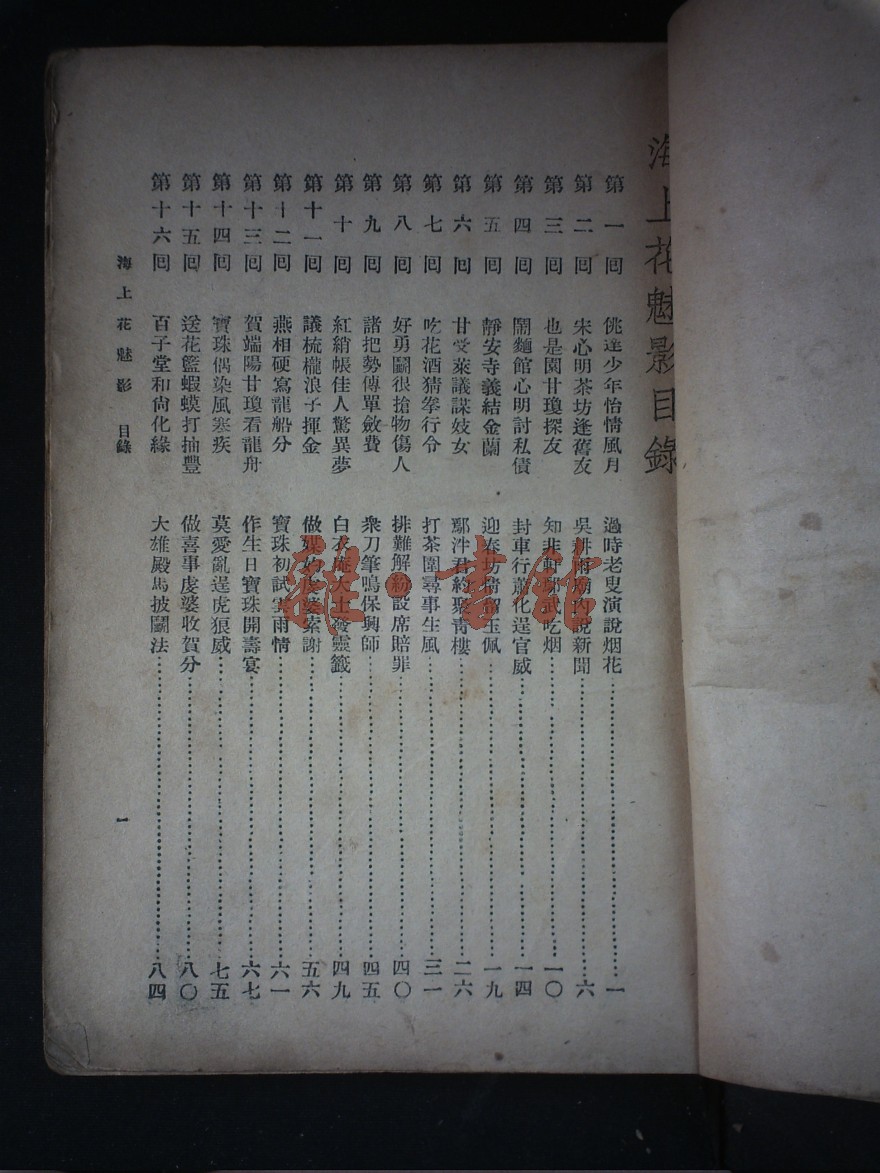 海上花魅影目錄
第一囘 佻達少年怡情風月 過時老叟演說烟花 一
第二囘 宋心明茶坊逢舊友 吳耕雨廟內說新聞 六
第三囘 也是園甘瓊探友 知非軒鄒武吃烟 一〇
第四囘 鬧麵館心明討私債 封車行蕭化逞官威 一四
第五囘 靜安寺義結金蘭 迎春坊 留玉佩 一九
第六囘 甘受萊議謀妓女 鄢泮君約聚靑樓 二六
第七囘 吃花酒猜拳行令 打茶圍尋事生風 三一
第八囘 好勇鬭很搶物傷人 排難解紛設席賠罪 四〇
第九囘 諸把勢傳單斂費 衆刀筆鳴保興師 四五
第十囘 紅綃帳佳人驚異夢 白衣庵大士發靈籤 四九
第十一囘 議梳櫳浪子揮金 做媒妁虔婆索謝 五六
第十二囘 燕相硬寫龍船分 寶珠初試雲雨情 六一
第十三囘 賀端陽甘瓊看龍舟 作生日寶珠開壽宴 六七
第十四囘 寶珠偶染風寒疾 莫愛亂逞虎狼威 七五
第十五囘 送花籃蝦蟆打抽豐 做喜事虔婆收賀分 八〇
第十六囘 百子堂和尙化緣 大雄殿馬披鬭法 八四
海上花魅影 目錄 一
雜·書館